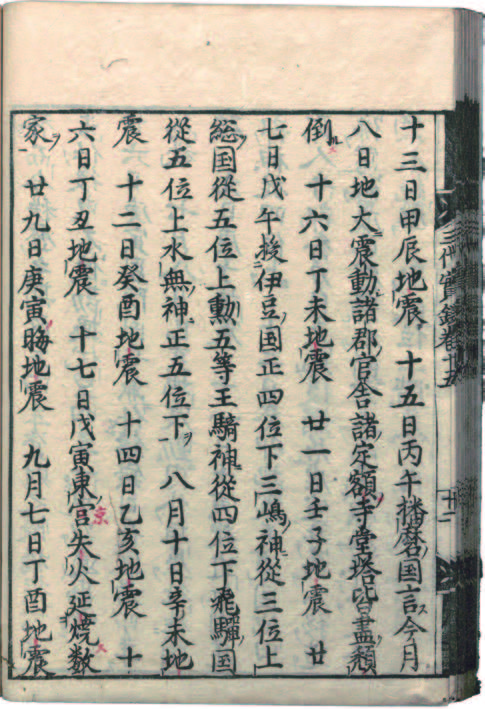 十三日甲辰地震　十五日丙午播磨国言今月
八日地大震動諸郡官舎諸定額寺堂塔皆盡頽
倒　十六日丁未地震　廿一日壬子地震　廿
七日戊午授伊豆国正四位下三嶋神從三位上
総国從五位上勳五等王騎神從四位下飛驒国
從五位上水無神正五位下　八月十日辛未地
震　十二日癸酉地震　十四日乙亥地震　十
六日丁丑地震　十七日戊寅東京宮失火延燒数
家　廿九日庚寅晦地震　九月七日丁酉地震
三代實録巻十五
十二